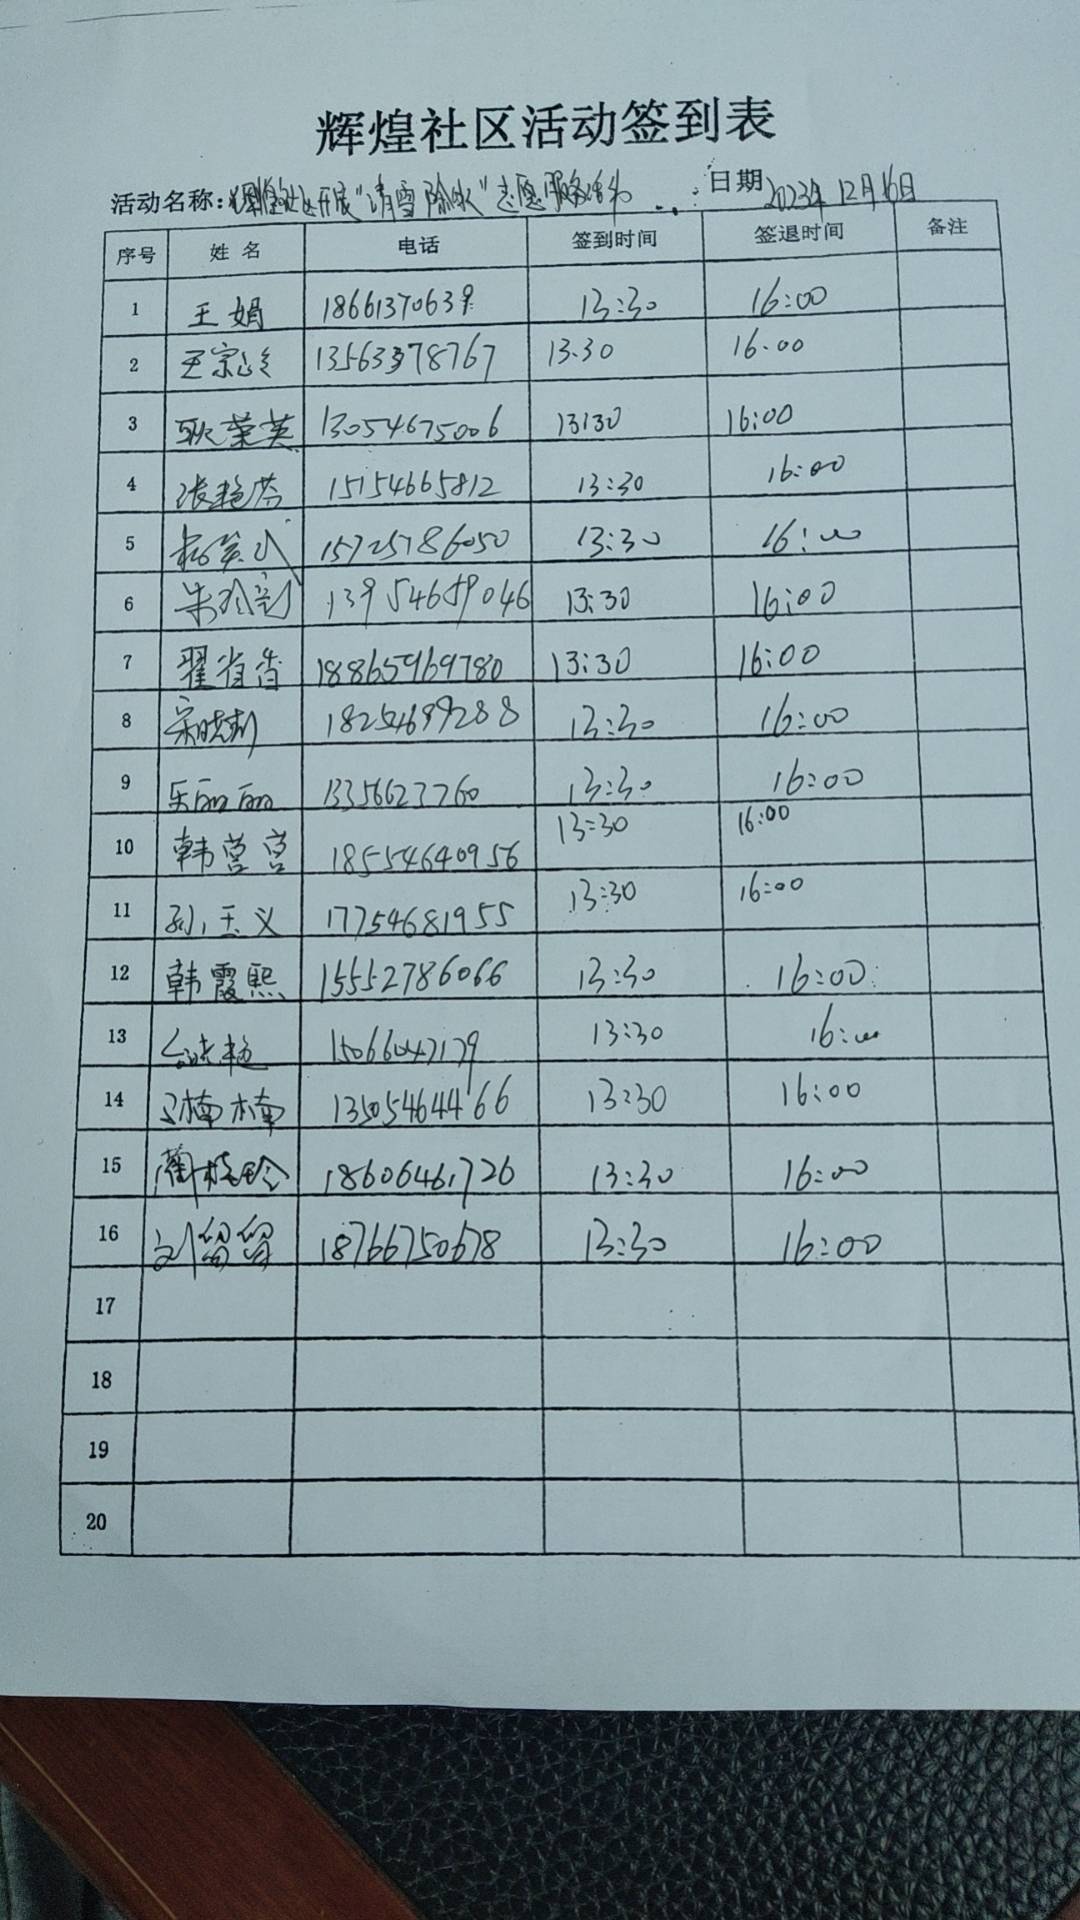 辉煌社区活动签到表
活动名称:辉煌社区开展"清雪除冰"志愿服务活动 日期 2023年12月16日
序号 姓名 电话 签到时间 签退时间 备注
1 王娟 18661370639 13:30 16:00
2 13563378767 13:30 16:00
3 耿荣英 13054675006 13:30 16:00
4 张艳芬 15154665812 13:30 16:00
5 15725786050 13:30 16:00
6 13954659046 13:30 16:00
7 翟省香 18865969780 13:30 16:00
8 宋晓莉 18254699288 13:30 16:00
9 丽丽 13:30 16:00
10 韩营营 18554640956 13:30 16:00
11 孙玉义 17754681955 13:30 16:00
12 韩霞熙 15552786066 13:30 16:00
13 15066047179 13:30 16:00
14 楠楠 135054644166 13:30 16:00
15 蔺桂玲 18606461726 13:30 16:00
16 刘留留 18766750678 13:30 16:00
17
18
19
20